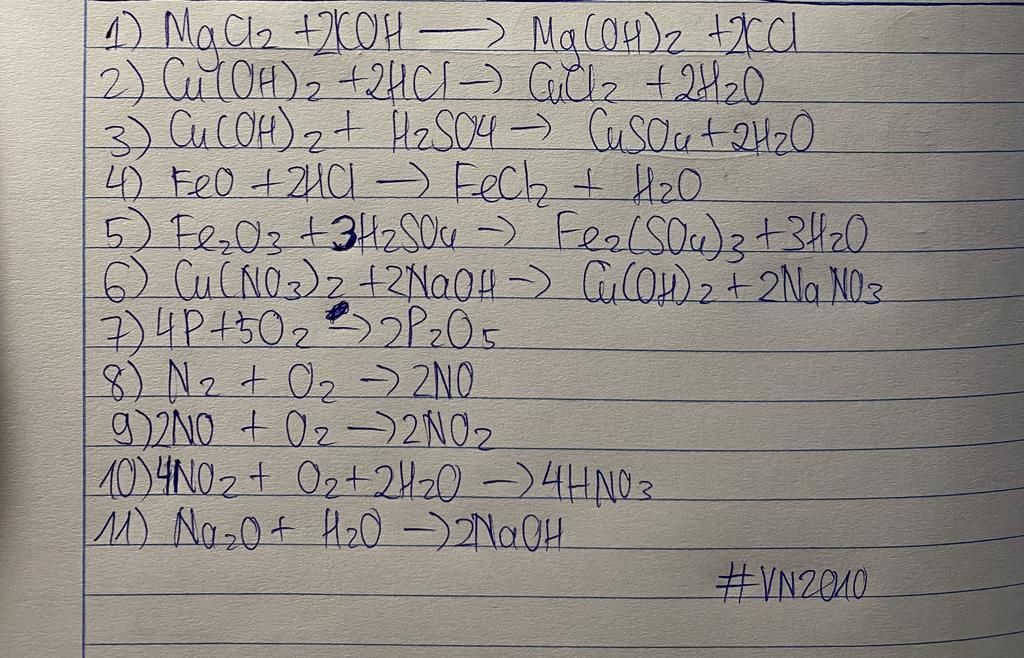 1) MgCl2 +2KOH → Mg(OH)2 +2KCl
2) Cu(OH)2 +2HCl → CuCl2 +2H2O
3) Cu(OH)2 + H2SO4 → CuSO4 + 2H2O
4) FeO +2HCl → FeCl2 + H2O
5) Fe2O3 +3H2SO4 → Fe2(SO4)3 +3H2O
6) Cu(NO3)2 +2NaOH → Cu(OH)2 + 2NaNO3
7) 4P+5O2 → 2P2O5
8) N2 + O2 → 2NO
9) 2NO + O2 → 2NO2
10) 4NO2 + O2+2H2O → 4HNO3
11) Na2O + H2O → 2NaOH
#VN2010